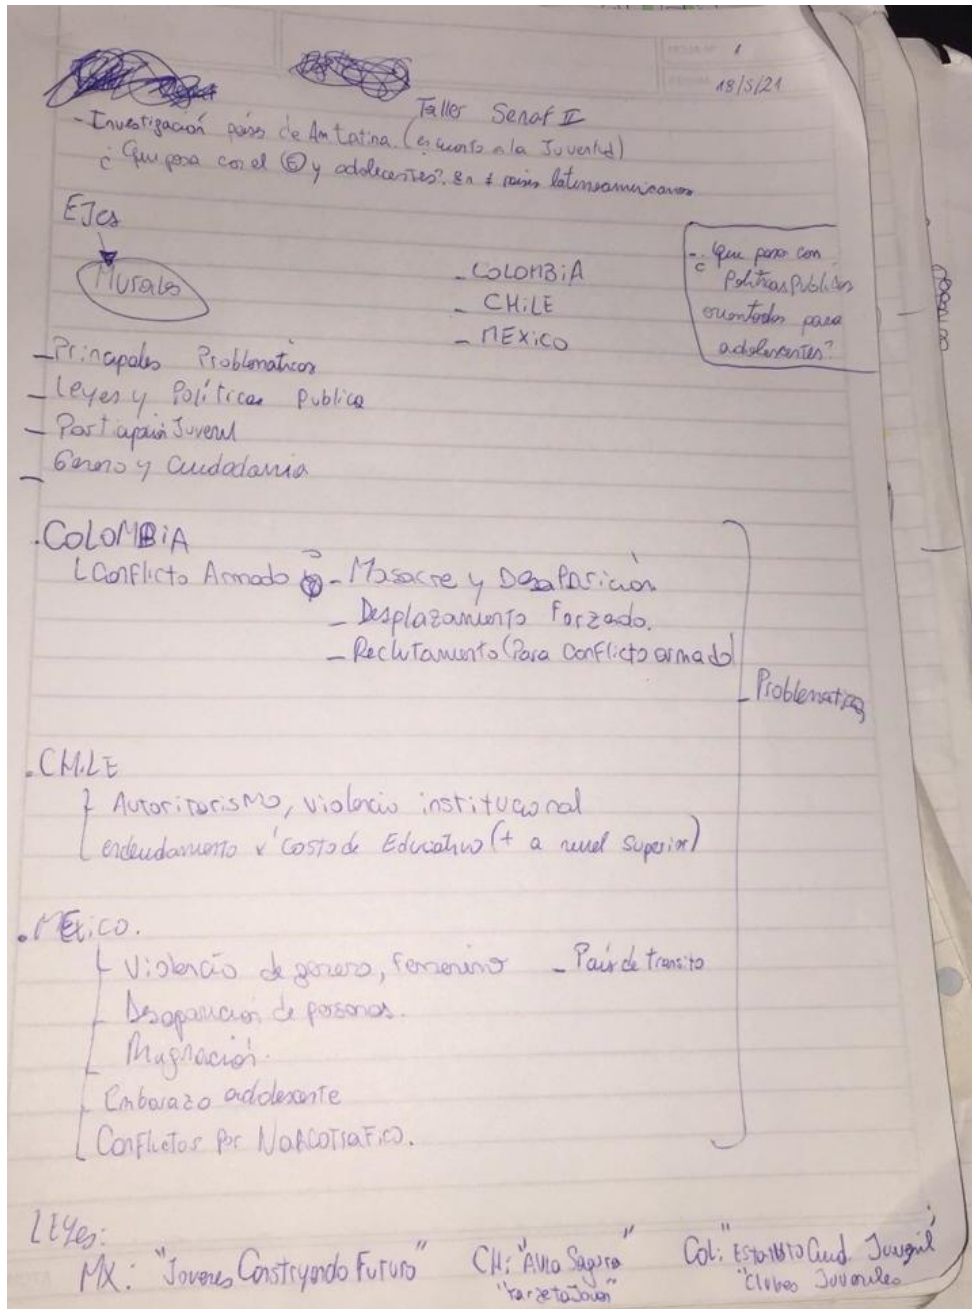 1
18/5/21
Taller Senaf II
- Investigación países de Am Latina. (en cuanto a la Juventud)
¿ Que pasa con el Ⓔ y adolecentes? en ≠ países latinoamericanos
EJes
Murales
- COLOMBiA
- CHiLE
- MEXiCO
- ¿ Que pasa con
Politicas Publicas
orientadas para
adolescentes?
- Principales Problematicas
- Leyes y Políticas Publica
- Participación Juvenil
- Genero y Ciudadania
-
. COLOMBiA
Conflicto Armado - Masacre y Desaparición
- Desplazamiento Forzado.
- Reclutamiento (Para conflicto armado)
- Problematicas
. CHiLE
Autoritarismo, violencia institucional
endeudamiento x' costo de Educativo (+ a nivel Superior)
. MExico.
Violencia de genero, Femenino - País de transito
Desaparición de personas.
Migración.
Embarazo adolescente
Conflictos por NARCOTRAFICO.
LEYes:
MX: "Jovenes Construyendo Futuro" CH: "Aula Segura" Col: "Estatuto Ciud. Juvenil"
"Tarjeta Joven" "Clubes Juveniles